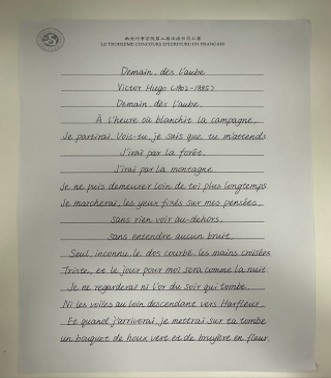 LE TROISIÈME CONCOURS D'ÉCRITURE EN FRANÇAIS
Demain, dès l'aube
Victor Hugo (1802-1885)
Demain, dès l'aube,
À l'heure où blanchit la campagne,
Je partirai. Vois-tu, je sais que tu m'attends.
J'irai par la forêt,
J'irai par la montagne
Je ne puis demeurer loin de toi plus longtemps.
Je marcherai, les yeux fixés sur mes pensées,
sans rien voir au-dehors,
sans entendre aucun bruit,
Seul, inconnu, le dos courbé, les mains croisées
Triste, et le jour pour moi sera comme la nuit.
Je ne regarderai ni l'or du soir qui tombe
Ni les voiles au loin descendant vers Harfleur,
Et quand j'arriverai, je mettrai sur ta tombe
un bouquet de houx vert et de bruyère en fleur.